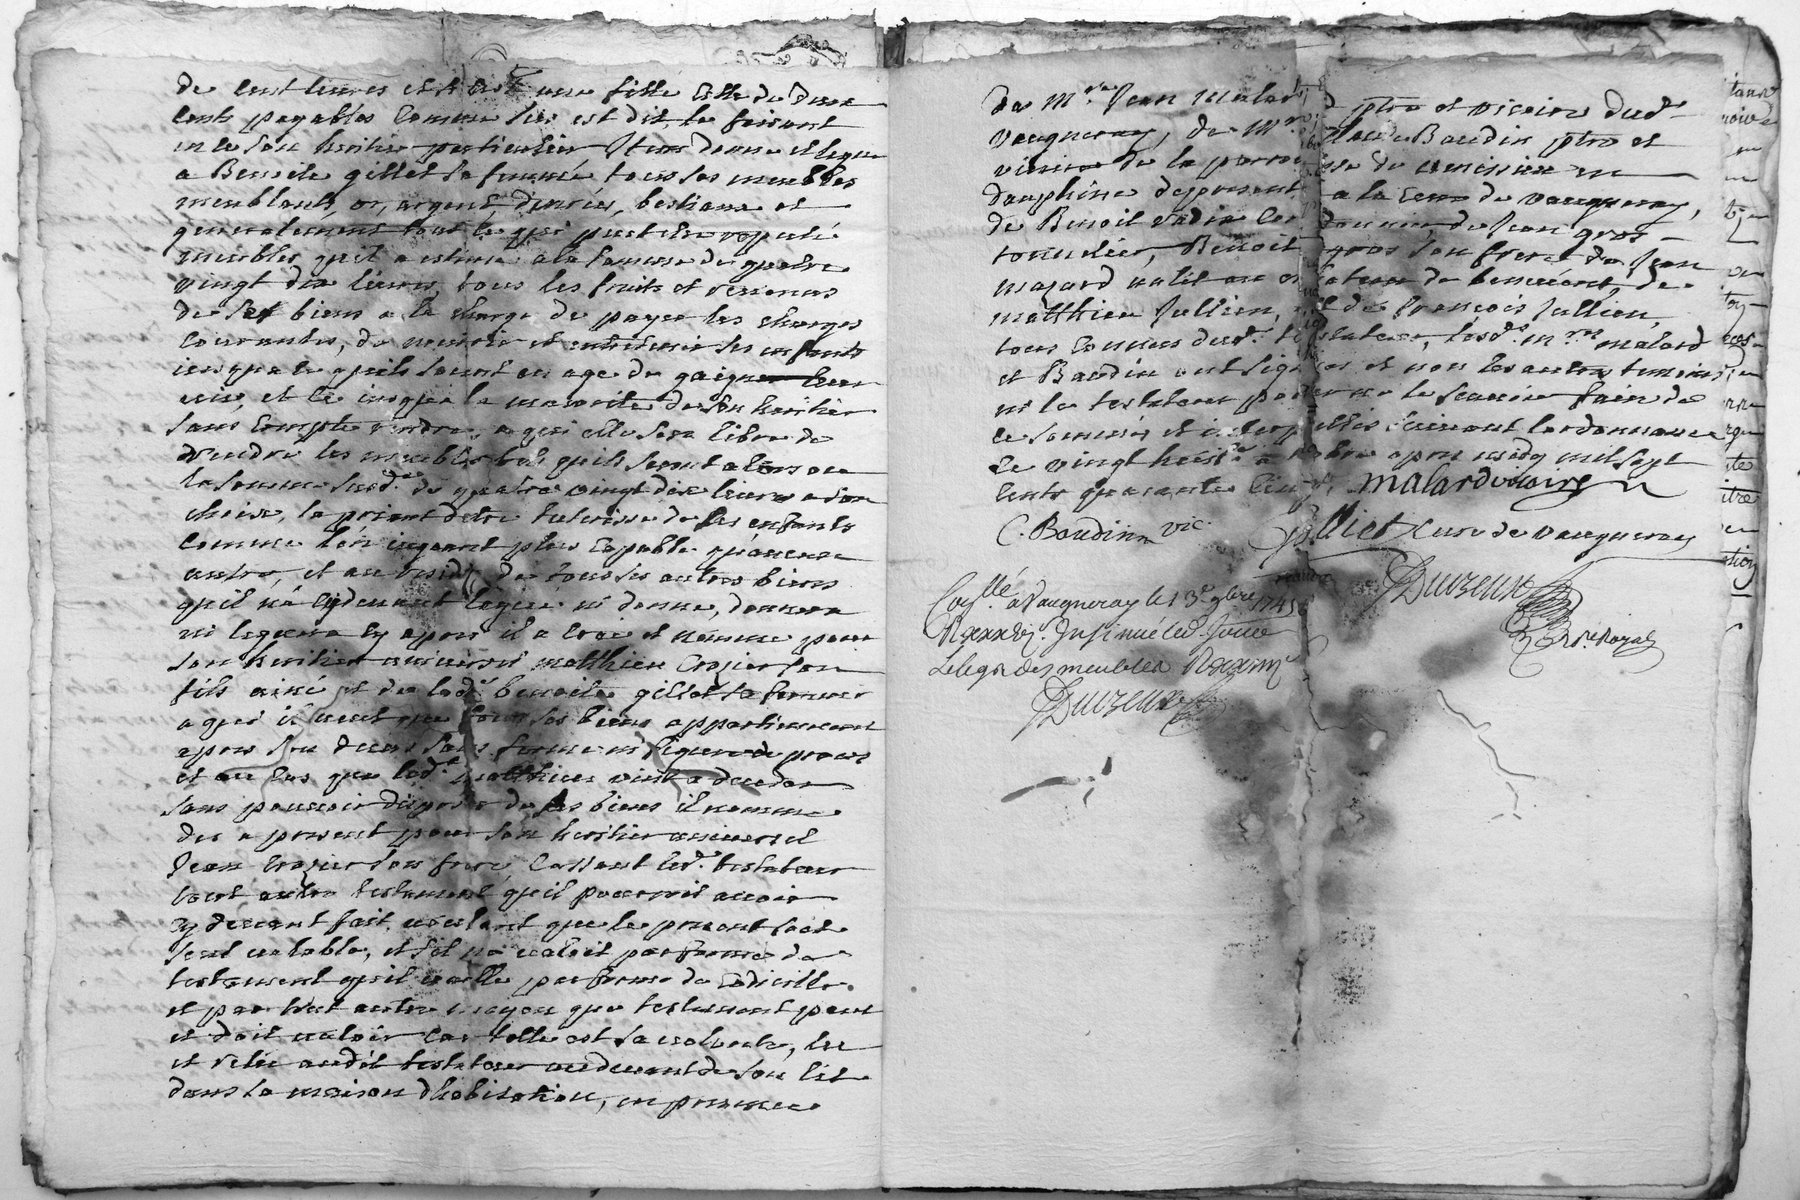 de cent livres et si c'est une fille celle de deux
cents payables comme sus est dit, le faisant
en ce son heritier particulier Item donne et legue
a Benoite gillet sa femme tous ses meubles
meublants, or, argent, denrées, bestiaux et
generalement tout ce qui peut etre reputé
meubles quil a estimé a la somme de quatre
vingt dix livres, tous les fruits et revenus
de ses biens a la charge de payer les charges
courantes, de nourir et entretenir ses enfants
jusqua ce quils soient en age de gaigner leur
vie, et ce jusqua la majorite de son heritier
sans compte rendre, a qui elle sera libre de
rendre les meubles tels quils seront alors ou
la somme susd.e de quatre vingt dix livres a son
choix, la priant detre tutrisse de ses enfants
comme len jugeant plus capable quaucune
autre, et au residu de tous ses autres biens
quil na cydevant legué ni donné, donnera
ni leguera cy apres il a créé et nommé pour
son heritier universel matthieu Crozier son
fils ainé et de lad.e benoite gillet sa femme
a qui il veut que tous ses biens appartiennent
apres son deces sans forme ni figure de proces
et au cas que led.t matthieu vint a deceder
sans pouvoir disposer de ses biens il nomme
des a present pour son heritier universel
Jean Crozier son frere, Cassant led.t testateur
tout autre testament quil pourroit avoir
cy devant fait, voulant que le present soit
seul valable, et sil ne valoit par forme de
testament quil vaille par forme de codicille
et par tout autre moyen que testament peut
et doit valoir car telle est sa volonté, leu
et releu audit testateur audevant de son lit
dans sa maison dhabitation, en presence
de M.re Jean Malard ptre et vicaire dud.
vaugneray, de M.re Claude Baudin ptre et
vicaire de la parroisse de en
dauphiné depresent a la Cure de vaugneray,
de Benoit cordonnier, de Jean gros
tonnelier, Benoit gros son frere de Jean
mazard valet au
matthieu Jullien, et de françois Jullien,
tous connus dud. testateur, lesd. m.res malard
et Baudin ont signés et non les autres temoins
ni le testateur pour ne le scavoir faire de
ce sommés et interpellés suivant lordonnance
le vingt huit.e octobre apres midy mil sept
cents quarante cinq. Malard vicaire
C. Baudin vic. Curé de vaugneray
Duvzeux
n.re Royal
Con.llé a Vaugneray le 13.e 9bre 1745
Insinué led. Jour
Le legs des meubles
Duvzeux